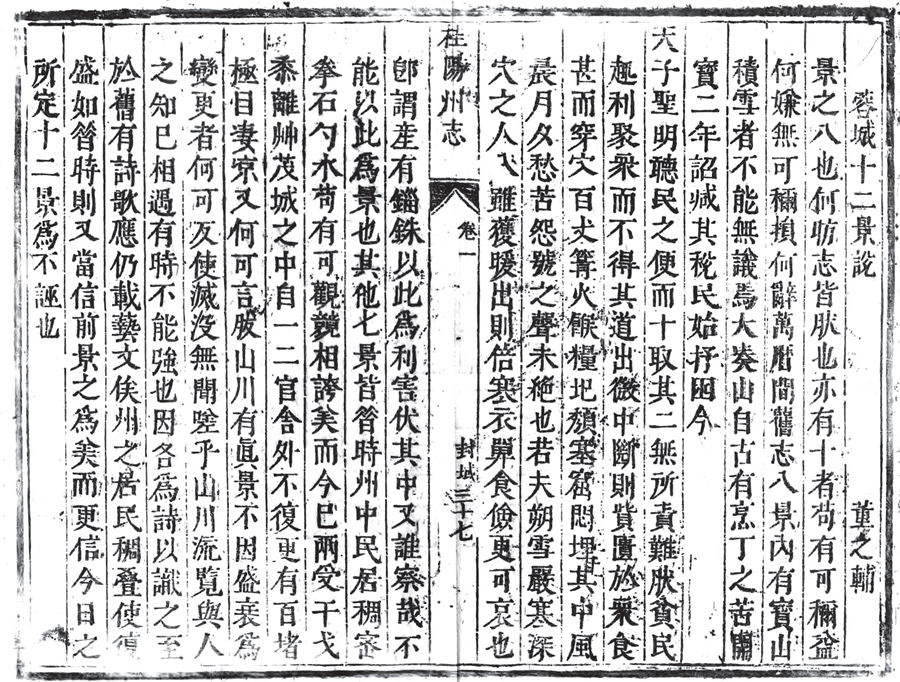 蓉城十二景說 董之輔
景之八也何昉志皆肰也亦有十者苟有可稱益
何嫌無可稱損何辭萬曆間舊志八景內有寶山
積雪者不能無議焉大凑山自古有烹丁之苦開
寶二年詔減其稅民始抒困今
天子聖明聽民之便而十取其二無所責難肰貧民
趨利聚衆而不得其道出微中斷則貲匱於衆食
甚而穿穴百丈篝火餱糧圯頹塞窟悶埋其中風
晨月夕愁苦怨號之聲未絕也若夫朔雪嚴寒深
穴之人入雖獲暖出則倍寒衣單食儉更可哀也
桂陽州志 卷一 封域 三十七
卽謂產有錙銖以此爲利害伏其中又誰察哉不
能以此爲景也其他七景皆昝時州中民居稠密
拳石勺水苟有可觀競相誇美而今巳兩受干戈
黍離艸茂城之中自一二官舍外不復更有百堵
極目凄凉又何可言肰山川有眞景不因盛衰爲
變更者何可反使滅沒無聞嗟乎山川流覽與人
之知巳相遇有時不能強也因各爲詩以識之至
於舊有詩歌應仍載藝文俟州之居民稠疊使復
盛如昝時則又當信前景之爲美而更信今日之
所定十二景爲不誣也